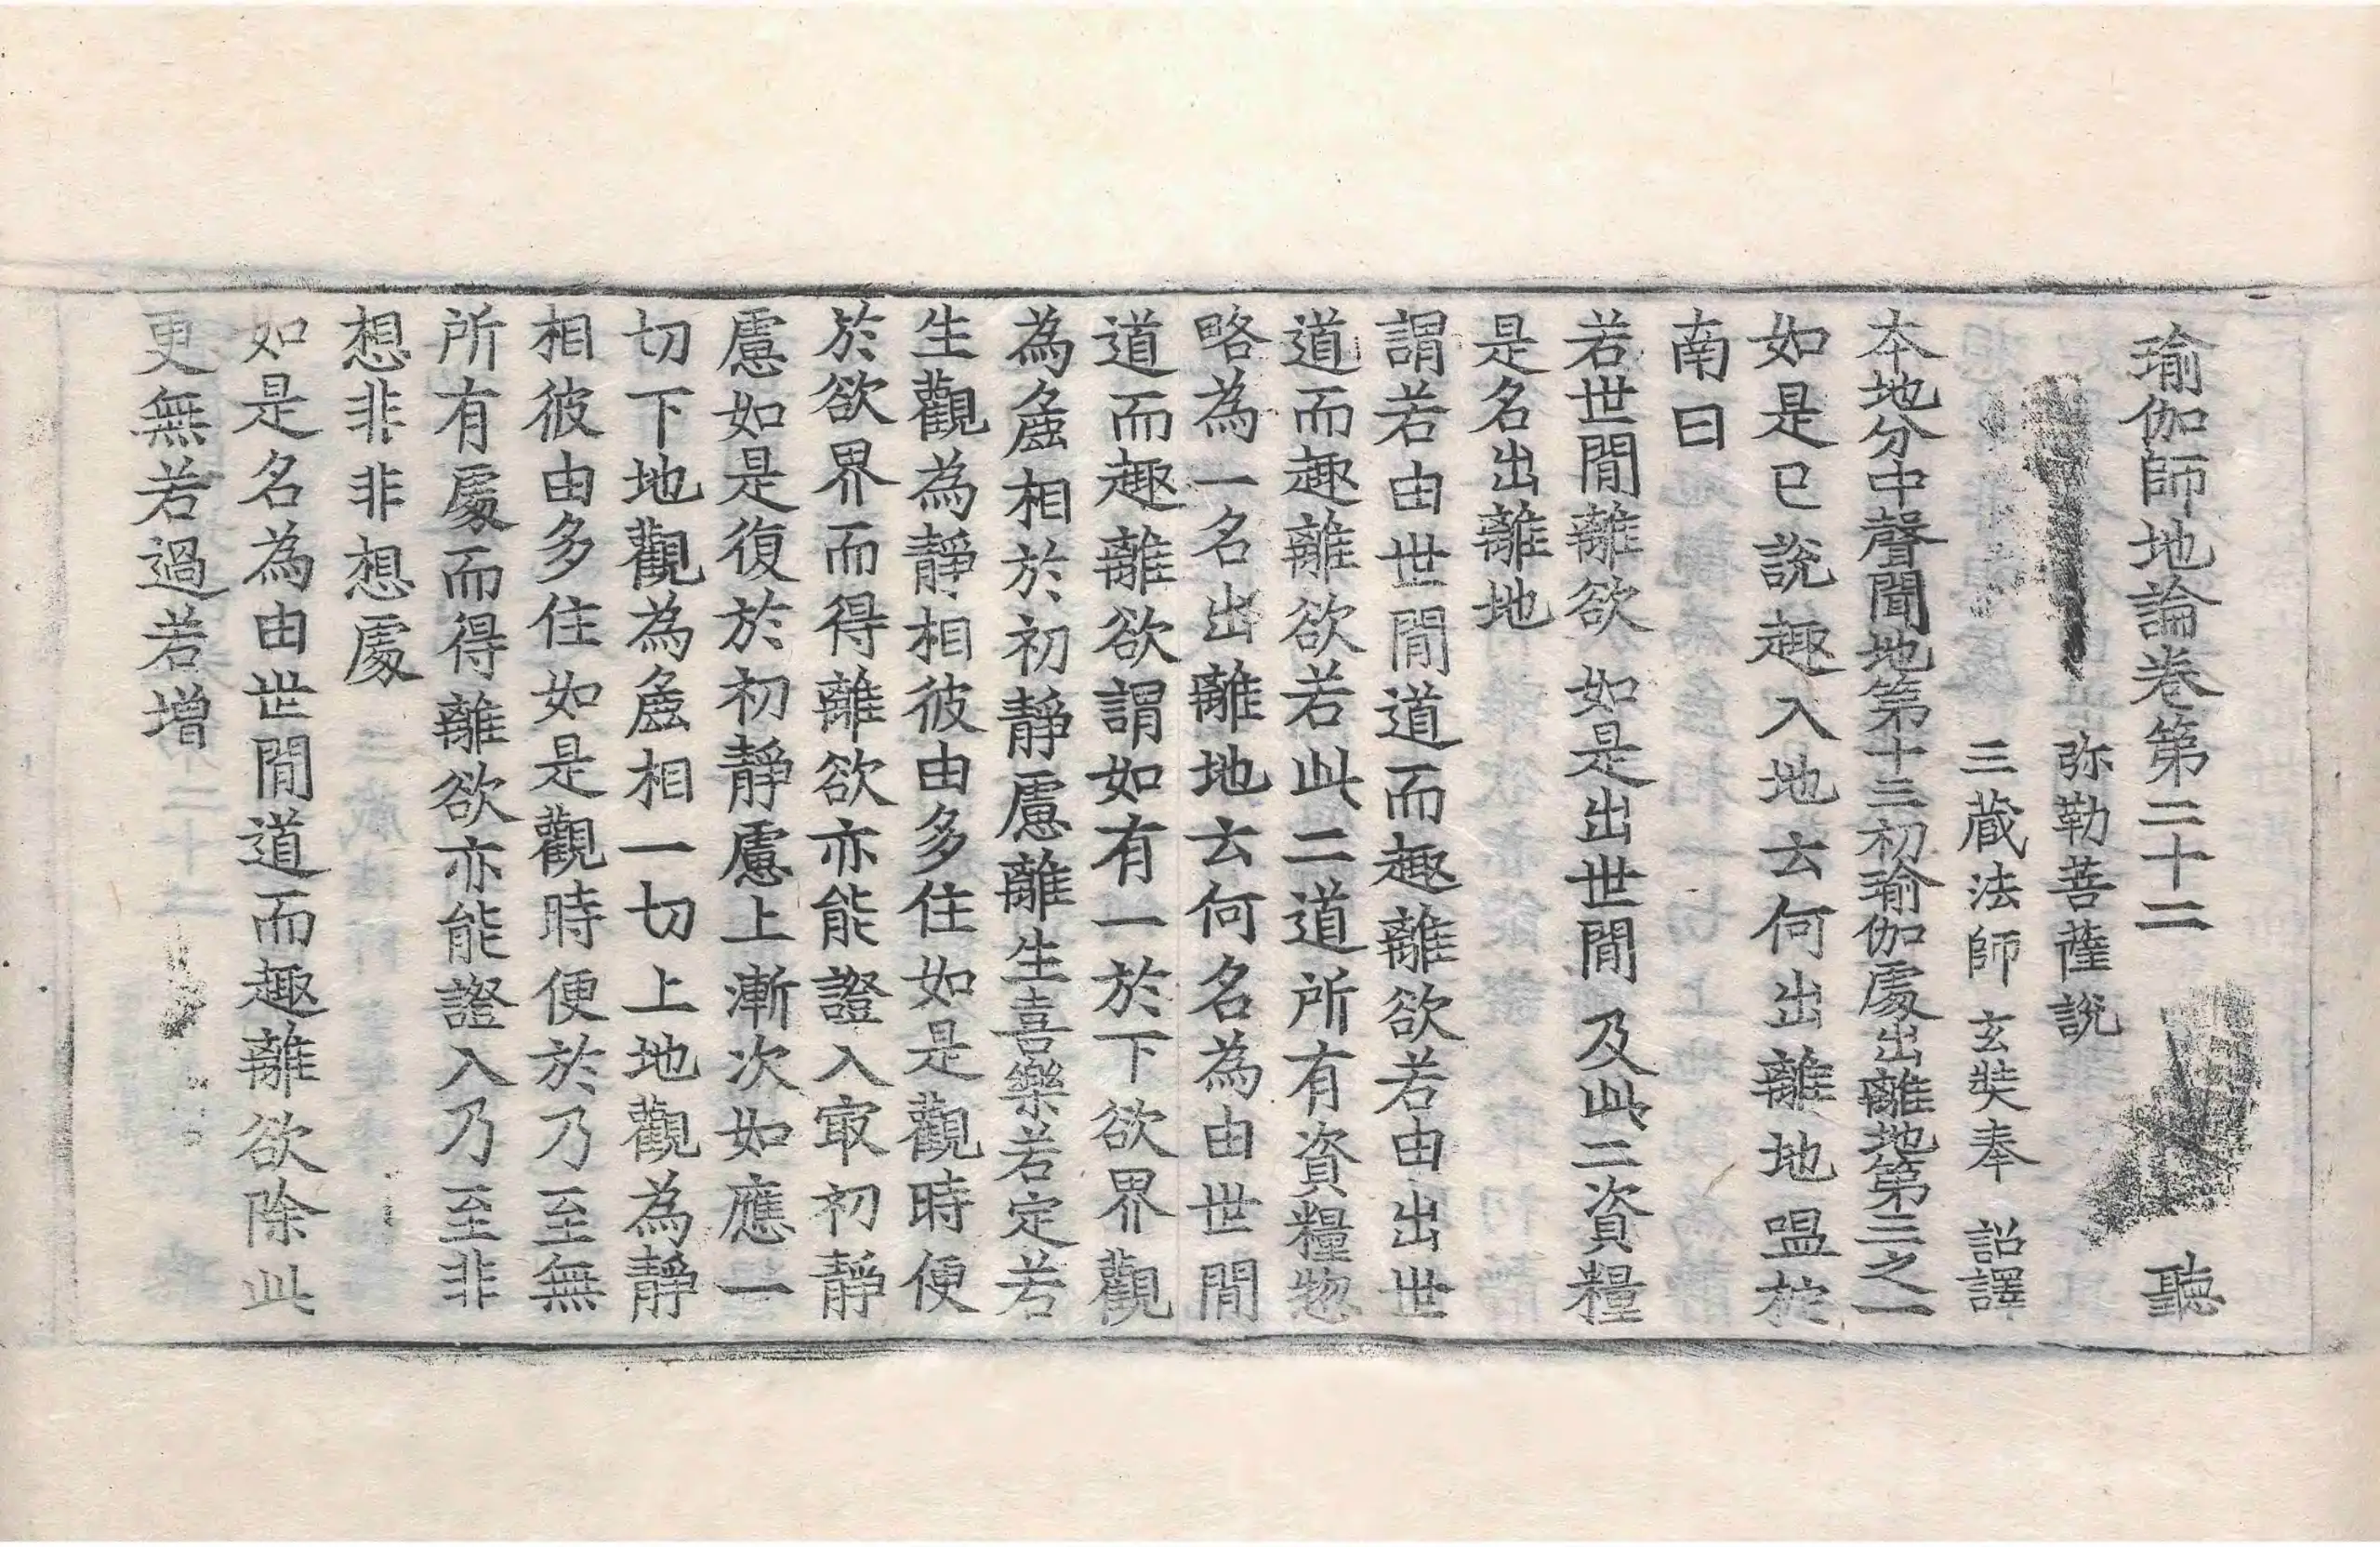 瑜伽師地論卷第二十二 聽
弥勒菩薩說
三藏法師玄奘奉 詔譯
本地分中聲聞地第十三初瑜伽處出離地第三之一
如是已說趣入地云何出離地嗢柁
南曰
若世間離欲 如是出世間 及此二資糧
是名出離地
謂若由世間道而趣離欲若由出世
道而趣離欲若此二道所有資糧惣
略為一名出離地云何名為由世間
道而趣離欲謂如有一於下欲界觀
為麁相於初靜慮離生喜樂若定若
生觀為靜相彼由多住如是觀時便
於欲界而得離欲亦能證入㝡初靜
慮如是復於初靜慮上漸次如應一
切下地觀為麁相一切上地觀為靜
相彼由多住如是觀時便於乃至無
所有處而得離欲亦能證入乃至非
想非非想處
如是名為由世間道而趣離欲除此
更無若過若增